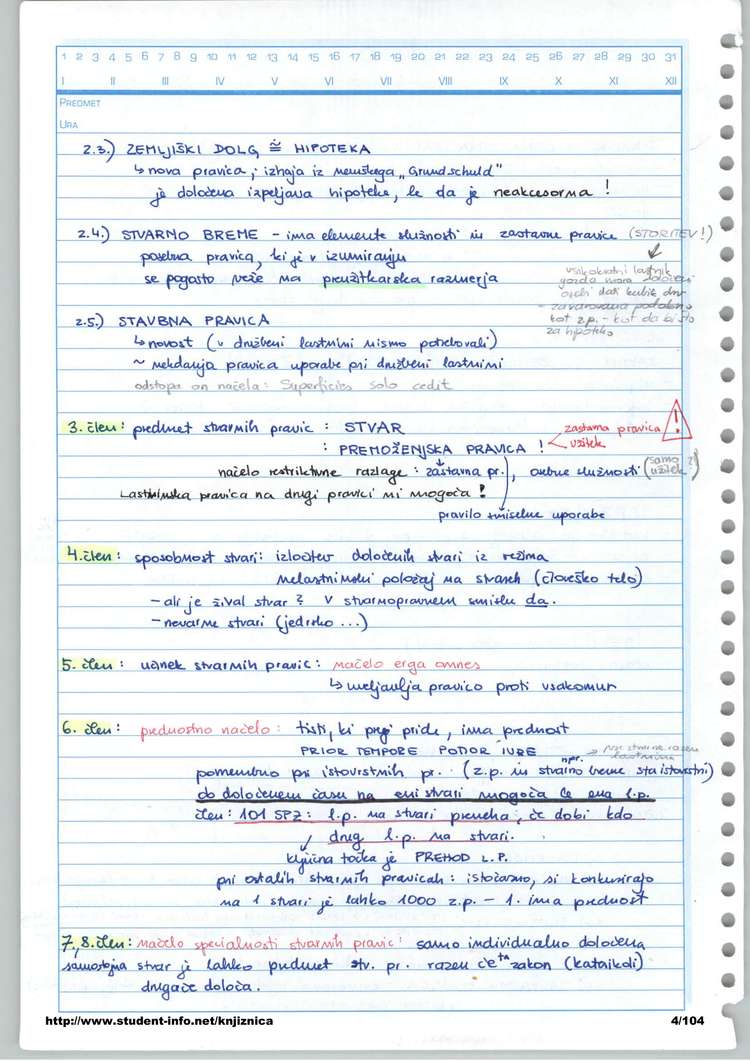 1 2 3 4 5 6 7 8 9 10 11 12 13 14 15 16 17 18 19 20 21 22 23 24 25 26 27 28 29 30 31
I II III IV V VI VII VIII IX X XI XII
PREDMET
URA
2.3.) ZEMLJIŠKI DOLG ≅ HIPOTEKA
↳ nova pravica, izhaja iz nemškega „Grundschuld"
je določena izpeljava hipoteke, le da je neakcesorna !
2.4.) STVARNO BREME - ima elemente služnosti in zastavne pravice (STORITEV!)
posebna pravica, ki je v izumiranju
se pogosto veže na preužitkarska razmerja
vsakokratni lastnik
gozda mora določeni
osebi dati kubik drv
- zavarovana podobno
kot z.p. - kot da bi šlo
za hipoteko
2.5.) STAVBNA PRAVICA
↳ novost (v družbeni lastnini nismo potrebovali)
~ nekdanja pravica uporabe pri družbeni lastnini
odstopa on načela: Superficies solo cedit
3. člen: predmet stvarnih pravic : STVAR
: PREMOŽENJSKA PRAVICA !
zastavna pravica !
užitek
načelo restriktivne razlage : zastavna pr., osebne služnosti (samo užitek ?)
Lastninska pravica na drugi pravici ni mogoča !
pravilo smiselne uporabe
4. člen: sposobnost stvari: izločitev določenih stvari iz režima
nelastninski položaj na stvareh (človeško telo)
- ali je žival stvar ? V stvarnopravnem smislu da.
- nevarne stvari (jedrsko ...)
5. člen : učinek stvarnih pravic : načelo erga omnes
↳ uveljavlja pravico proti vsakomur
6. člen : prednostno načelo : tisti, ki prej pride, ima prednost
PRIOR TEMPORE POTIOR IURE
pomembno pri istovrstnih pr. (npr. z.p. in stvarno breme sta istovrstni)
ob določenem času na eni stvari mogoča le ena l.p.
člen: 101 SPZ: l.p. na stvari preneha, če dobi kdo
drug l.p. na stvari.
ključna točka je PREHOD L.P.
pri ostalih stvarnih pravicah : istočasno, si konkurirajo
na 1 stvari je lahko 1000 z.p. - 1. ima prednost
7., 8. člen: načelo specialnosti stvarnih pravic: samo individualno določena
samostojna stvar je lahko predmet stv. pr. razen če ta zakon (katerikoli)
drugače določa.
http://www.student-info.net/knjiznica 4/104